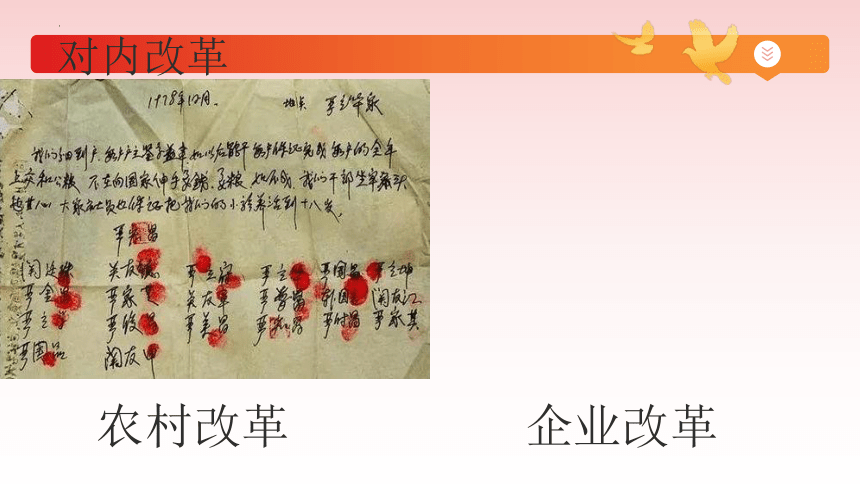 对内改革
1978年12月. 地点 严立华家
我们分田到户.每户户主签字盖章.如以后能干每户保证完成每户的全年
上交和公粮 不在向国家伸手要钱.要粮 如不成.我们干部坐牢杀头
也甘心 大家社员也保证把我们的小孩养活到十八岁.
严宏昌
关友 严立 严立 严国昌 严立坤
严金昌 严家芝 关友 严学昌 韩国 关友江
严立学 严俊昌 严美昌 严 昌 严付昌 严家其
严国品 关友申
农村改革
企业改革